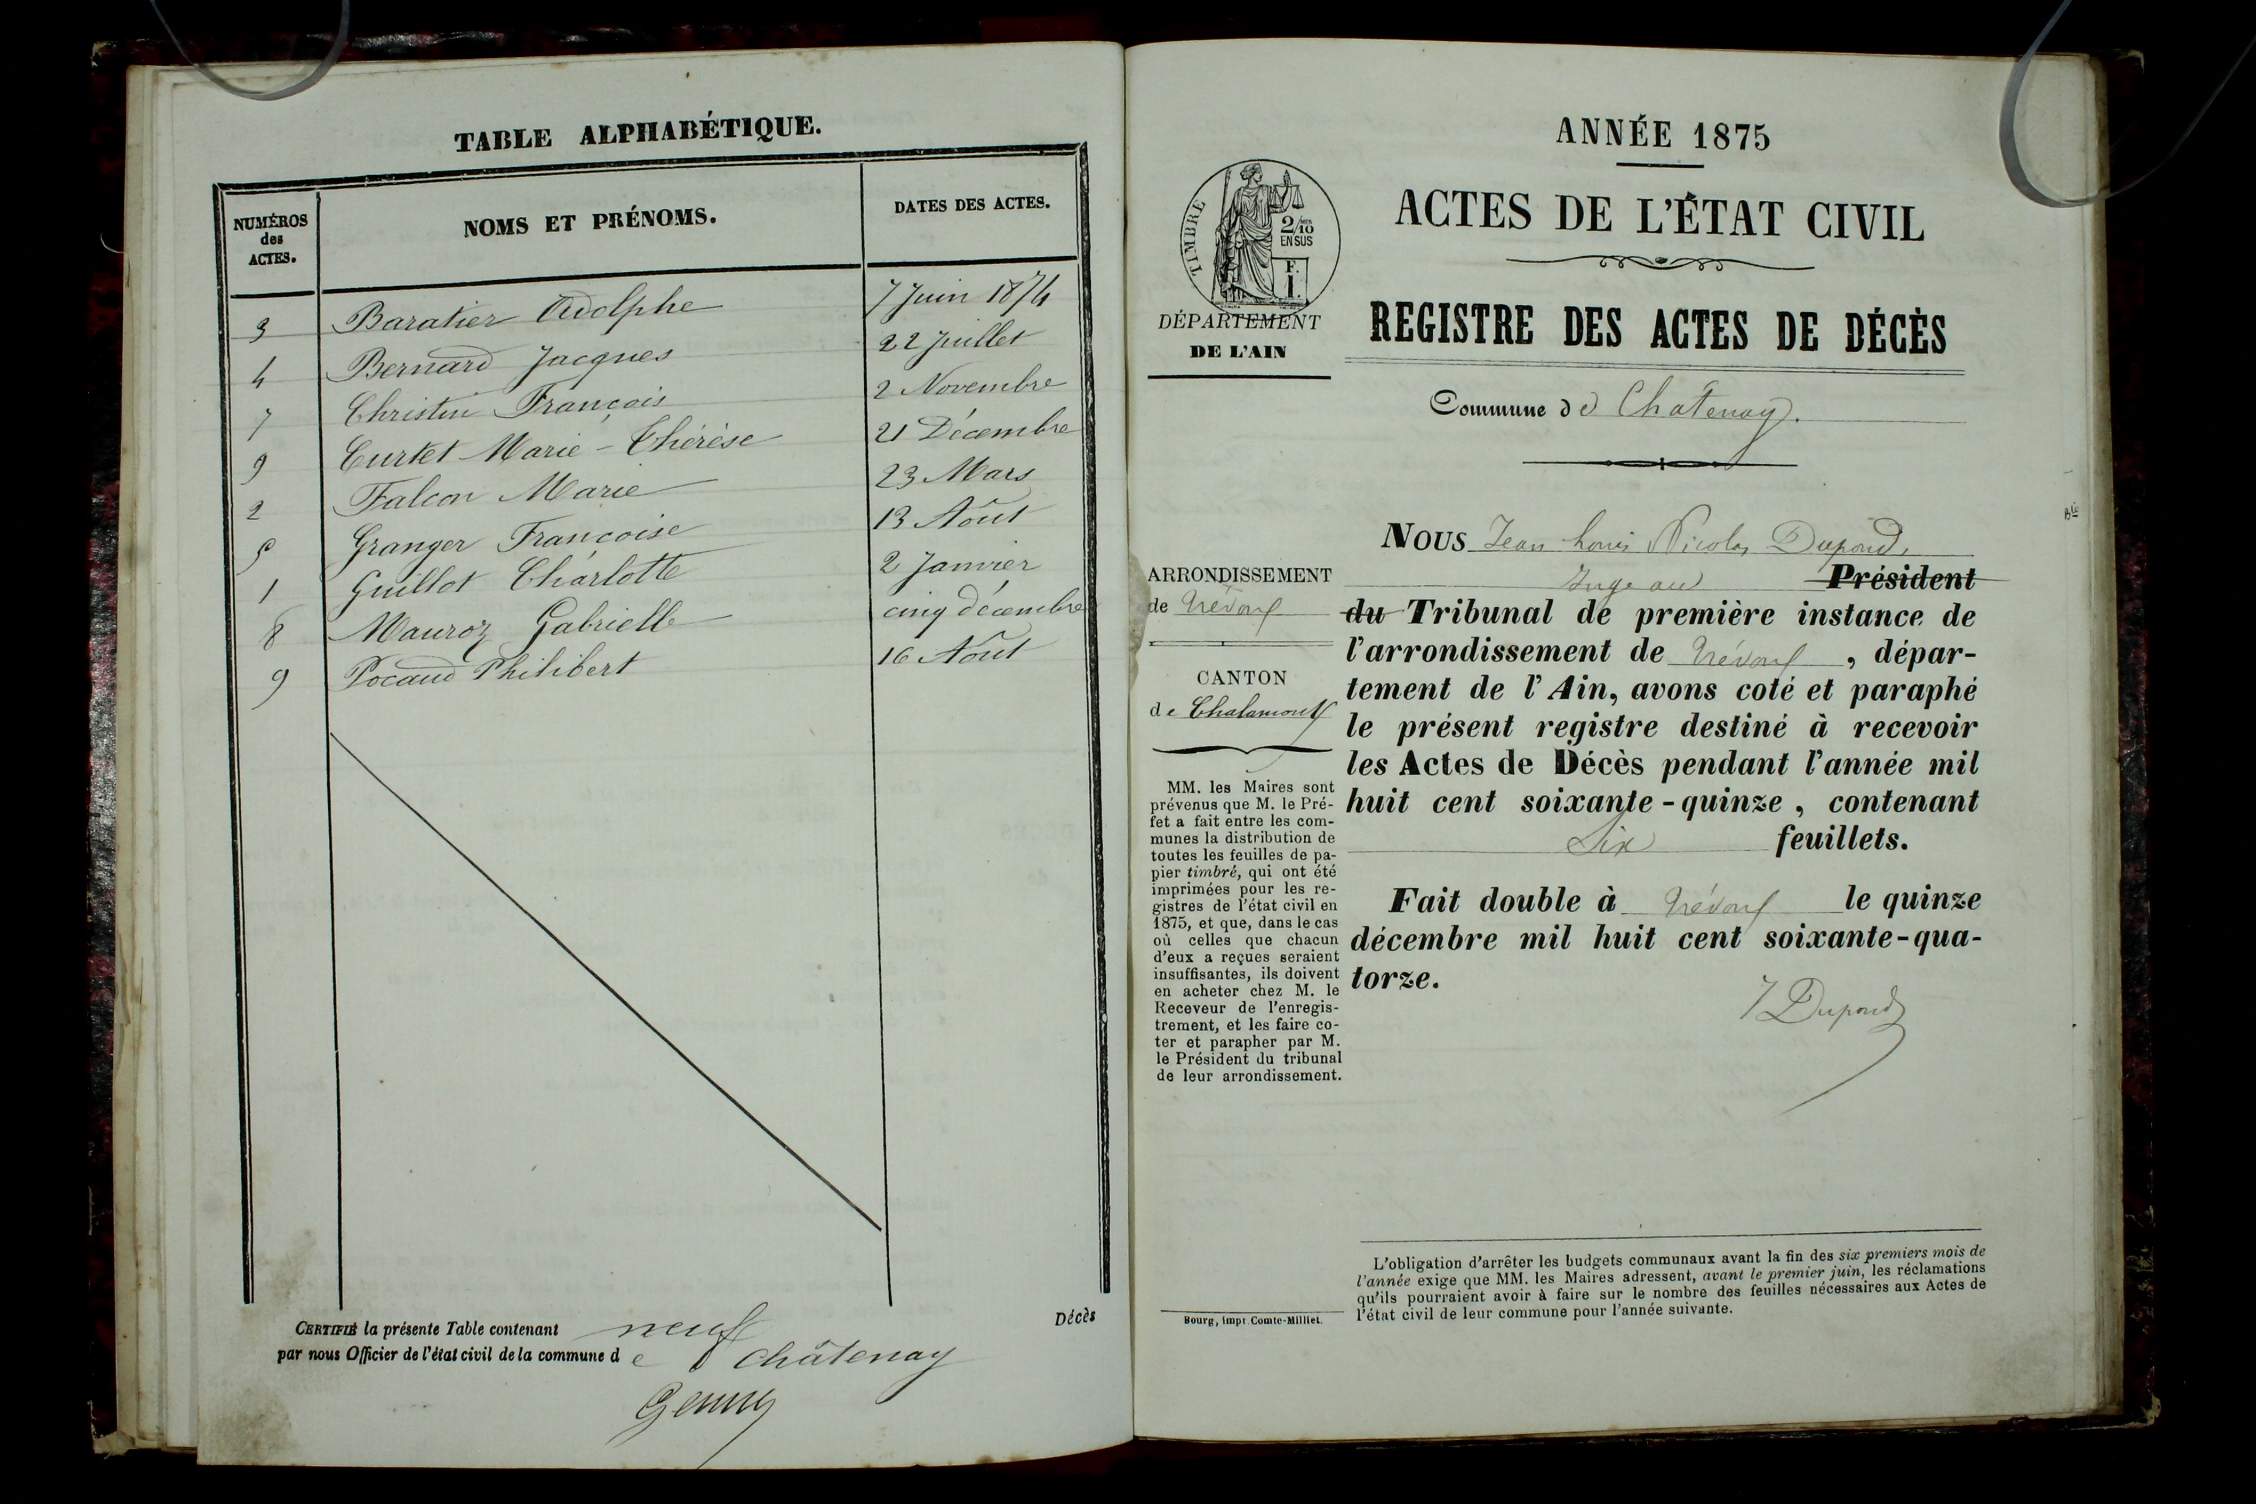 TABLE ALPHABÉTIQUE.
NUMÉROS des ACTES. NOMS ET PRÉNOMS. DATES DES ACTES.
3 Baratier Adolphe 7 Juin 1874
4 Bernard Jacques 22 Juillet
7 Christin François 2 Novembre
9 Curtet Marie-Thérèse 21 Décembre
2 Falcon Marie 23 Mars
5 Granger Françoise 13 Aôut
1 Guillot Charlotte 2 Janvier
8 Mauroz Gabrielle cinq décembre
9 Pocaud Philibert 16 Aôut
CERTIFIÉ la présente Table contenant neuf Décès
par nous Officier de l'état civil de la commune de Châtenay
ANNÉE 1875
ACTES DE L'ÉTAT CIVIL
REGISTRE DES ACTES DE DÉCÈS
TIMBRE
2/10
EN SUS
F.
1.
DÉPARTEMENT
DE L'AIN
Commune de Châtenay.
ARRONDISSEMENT
de Trévoux
CANTON
de Chalamont
MM. les Maires sont
prévenus que M. le Pré-
fet a fait entre les com-
munes la distribution de
toutes les feuilles de pa-
pier timbré, qui ont été
imprimées pour les re-
gistres de l'état civil en
1875, et que, dans le cas
où celles que chacun
d'eux a reçues seraient
insuffisantes, ils doivent
en acheter chez M. le
Receveur de l'enregis-
trement, et les faire co-
ter et parapher par M.
le Président du tribunal
de leur arrondissement.
Bourg, impr. Comte-Milliet.
NOUS Jean Louis Nicolas Dupond,
Juge au Président
du Tribunal de première instance de
l'arrondissement de Trévoux, dépar-
tement de l'Ain, avons coté et paraphé
le présent registre destiné à recevoir
les Actes de Décès pendant l'année mil
huit cent soixante-quinze, contenant
Six feuillets.
Fait double à Trévoux le quinze
décembre mil huit cent soixante-qua-
torze.
J Dupond
L'obligation d'arrêter les budgets communaux avant la fin des six premiers mois de
l'année exige que MM. les Maires adressent, avant le premier juin, les réclamations
qu'ils pourraient avoir à faire sur le nombre des feuilles nécessaires aux Actes de
l'état civil de leur commune pour l'année suivante.